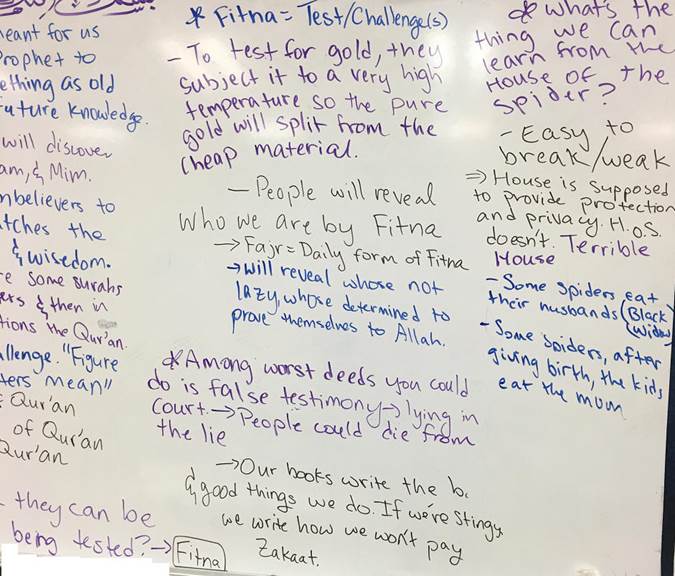 meant for us
Prophet to
ething as old
uture knowledge.
will discover
am, & Mim.
nbelievers to
atches the
& wisedom.
re some surahs
ers & then in
tions the Qur'an.
allenge. "Figure
ters mean"
Qur'an
of Qur'an
Qur'an
they can be
being tested? → Fitna
* Fitna = Test/Challenge(s)
- To test for gold, they
subject it to a very high
temperature so the pure
gold will split from the
cheap material.
- People will reveal
who we are by Fitna
→ Fajr = Daily form of Fitna
→ will reveal whose not
lazy, whose determined to
prove themselves to Allah.
* Among worst deeds you could
do is false testimony → lying in
court. → People could die from
the lie
→ Our books write the b.
& good things we do. If we're stingy,
we write how we won't pay
Zakaat.
* What's the
thing we can
learn from the
House of the
spider?
- Easy to
break/weak
⇒ House is supposed
to provide protection
and privacy. H.o.S.
doesn't. Terrible
House
- Some spiders eat
their husbands (Black
Widow)
- Some spiders, after
giving birth, the kids
eat the mum